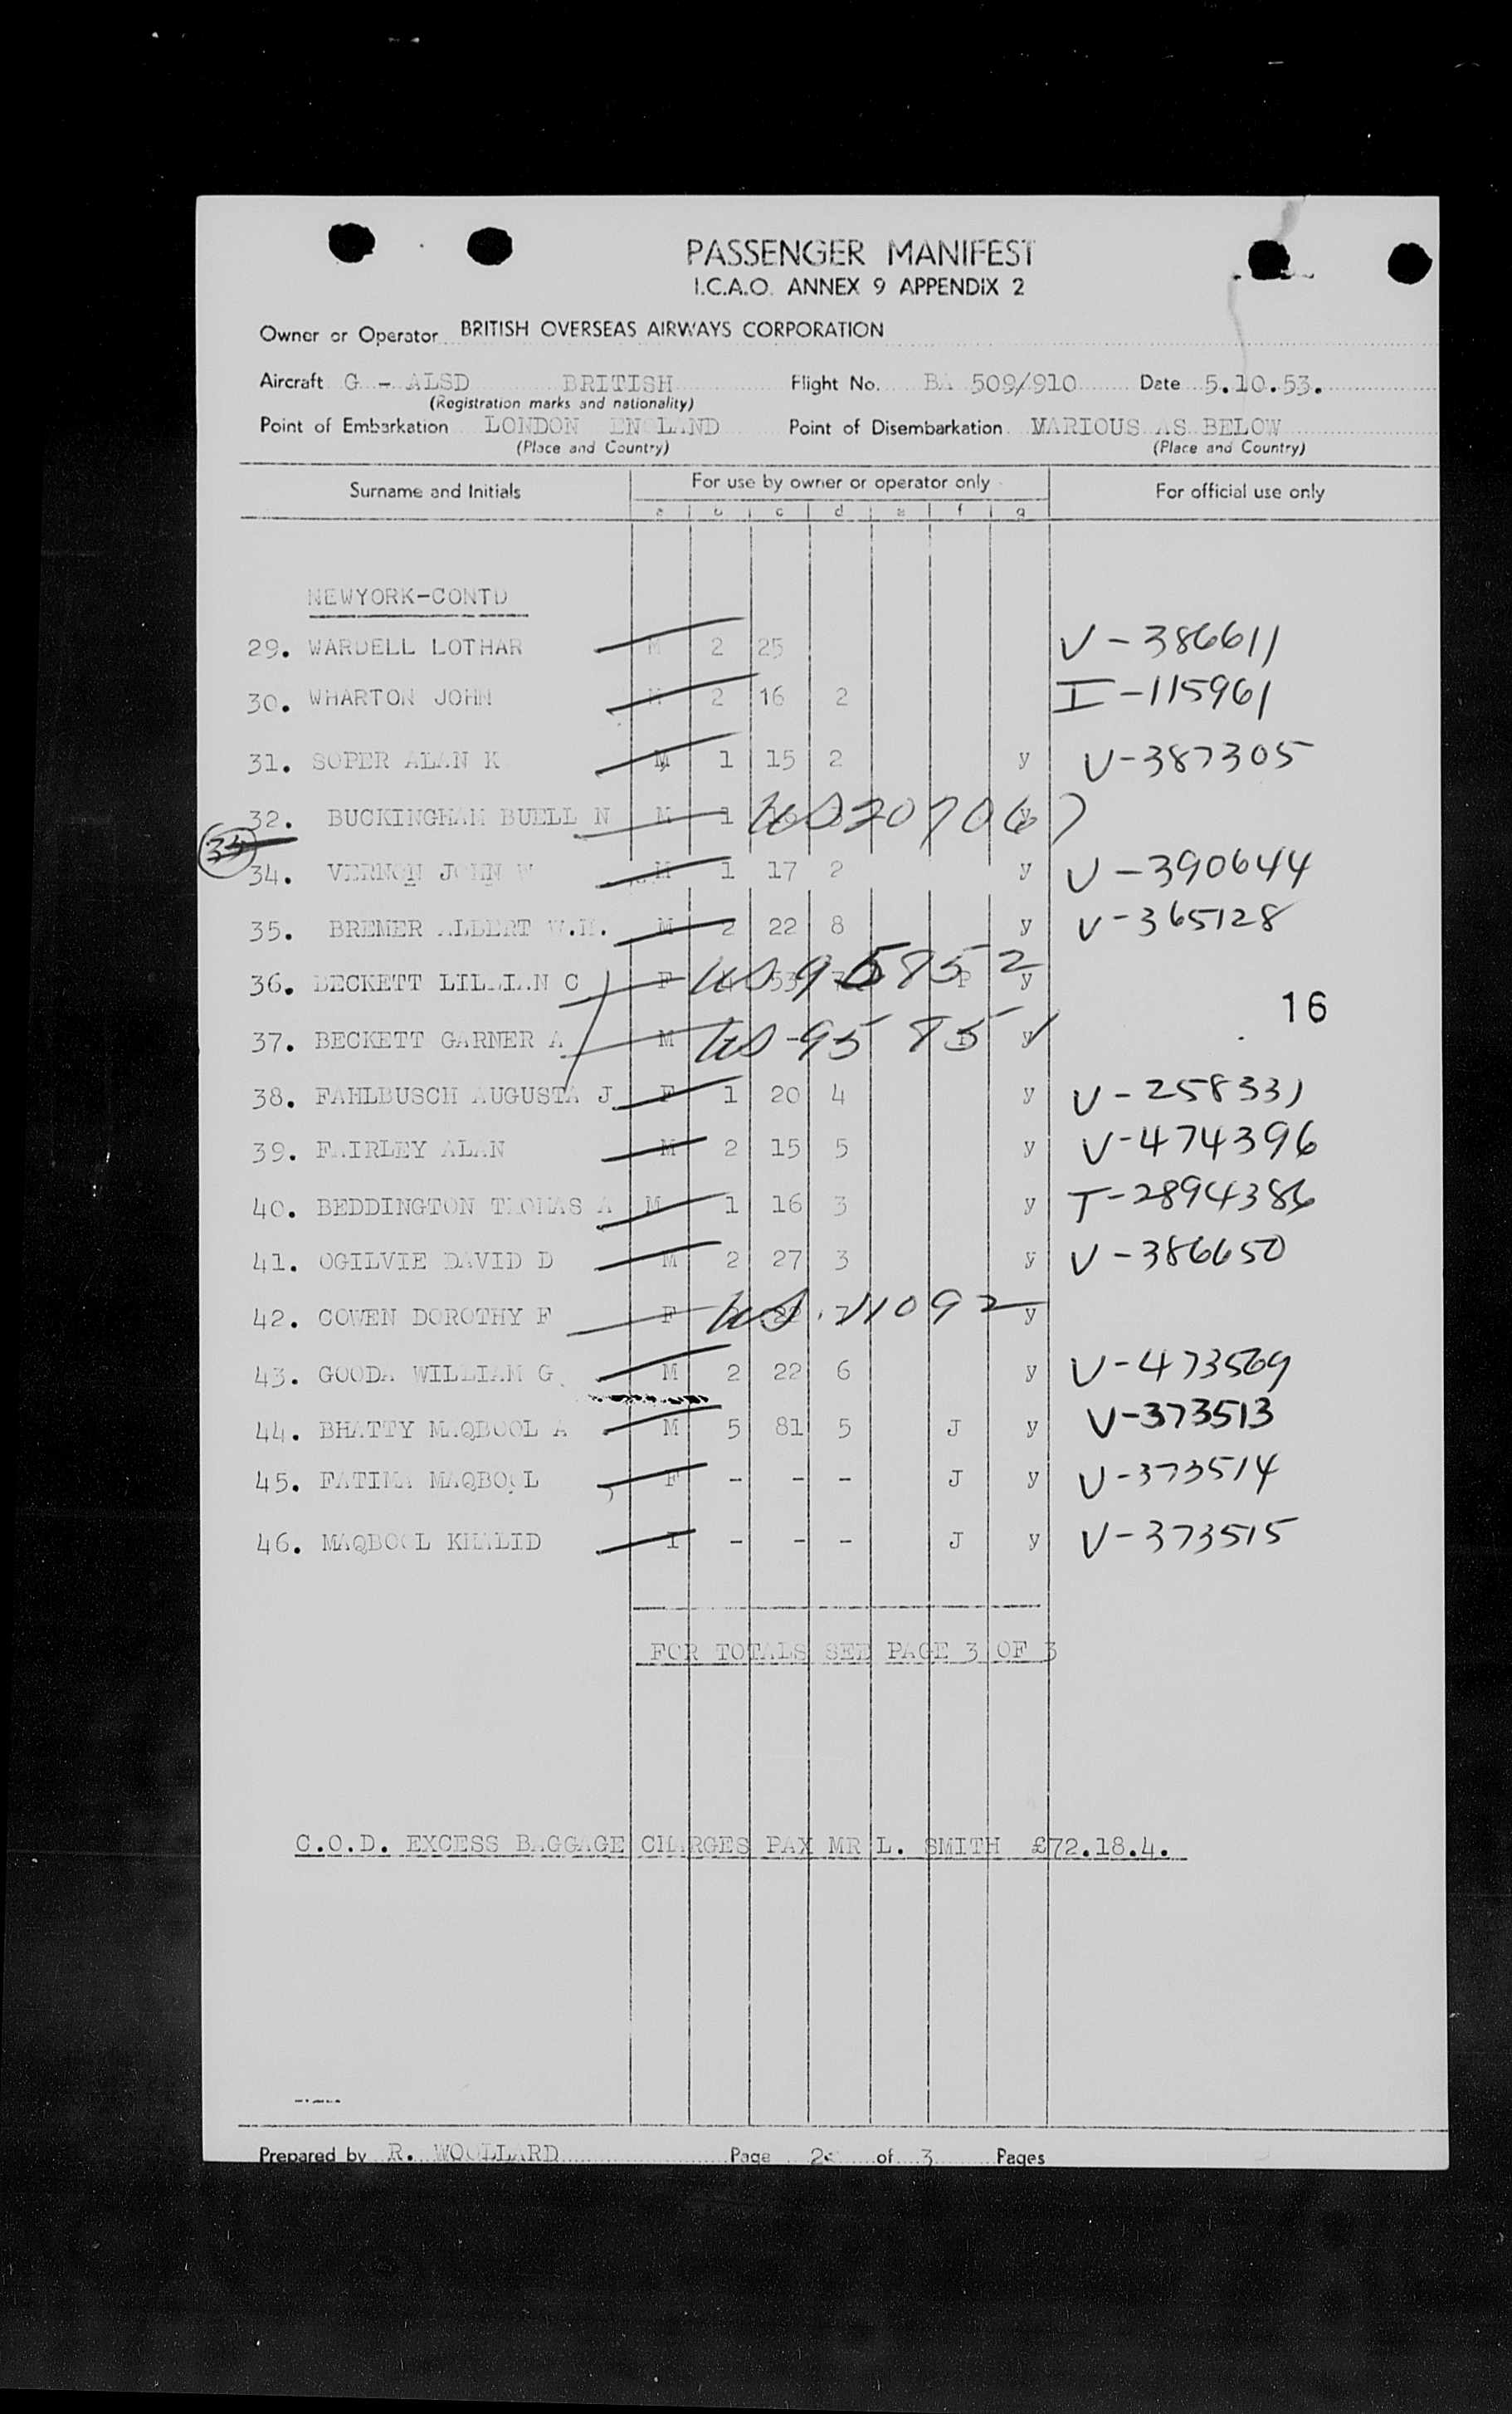 PASSENGER MANIFEST
I.C.A.O. ANNEX 9 APPENDIX 2
Owner or Operator BRITISH OVERSEAS AIRWAYS CORPORATION
Aircraft G - ALSD BRITISH Flight No. BA 509/910 Date 5.10.53.
(Registration marks and nationality)
Point of Embarkation LONDON ENGLAND Point of Disembarkation MARIOUS AS BELOW
(Place and Country) (Place and Country)
Surname and Initials For use by owner or operator only For official use only
a b c d e f g
NEWYORK-CONTD
29. WARDELL LOTHAR M 2 25 V-386611
30. WHARTON JOHN M 2 16 2 I-115961
31. SOPER ALAN K M 1 15 2 y V-387305
32. BUCKINGHAM BUELL N M 1 US 207067 y
33
34. VERNON JOHN W M 1 17 2 y V-390644
35. BREMER ALBERT W.H. M 2 22 8 y V-365128
36. BECKETT LILLIAN C F 4 53 7 US 95852 P y
16
37. BECKETT GARNER A M US-95851 y
38. FAHLBUSCH AUGUSTA J F 1 20 4 y V-258331
39. FAIRLEY ALAN M 2 15 5 y V-474396
40. BEDDINGTON THOMAS A M 1 16 3 y T-2894386
41. OGILVIE DAVID D M 2 27 3 y V-386650
42. COWEN DOROTHY F F US 21092 y
43. GOODA WILLIAM G. M 2 22 6 y V-473569
44. BHATTY MAQBOOL A M 5 81 5 J y V-373513
45. FATIMA MAQBOOL F - - - J y V-373514
46. MAQBOOL KHALID I - - - J y V-373515
FOR TOTALS SEE PAGE 3 OF 3
C.O.D. EXCESS BAGGAGE CHARGES PAX MR L. SMITH £72.18.4.
Prepared by R. WOOLLARD Page 2 of 3 Pages